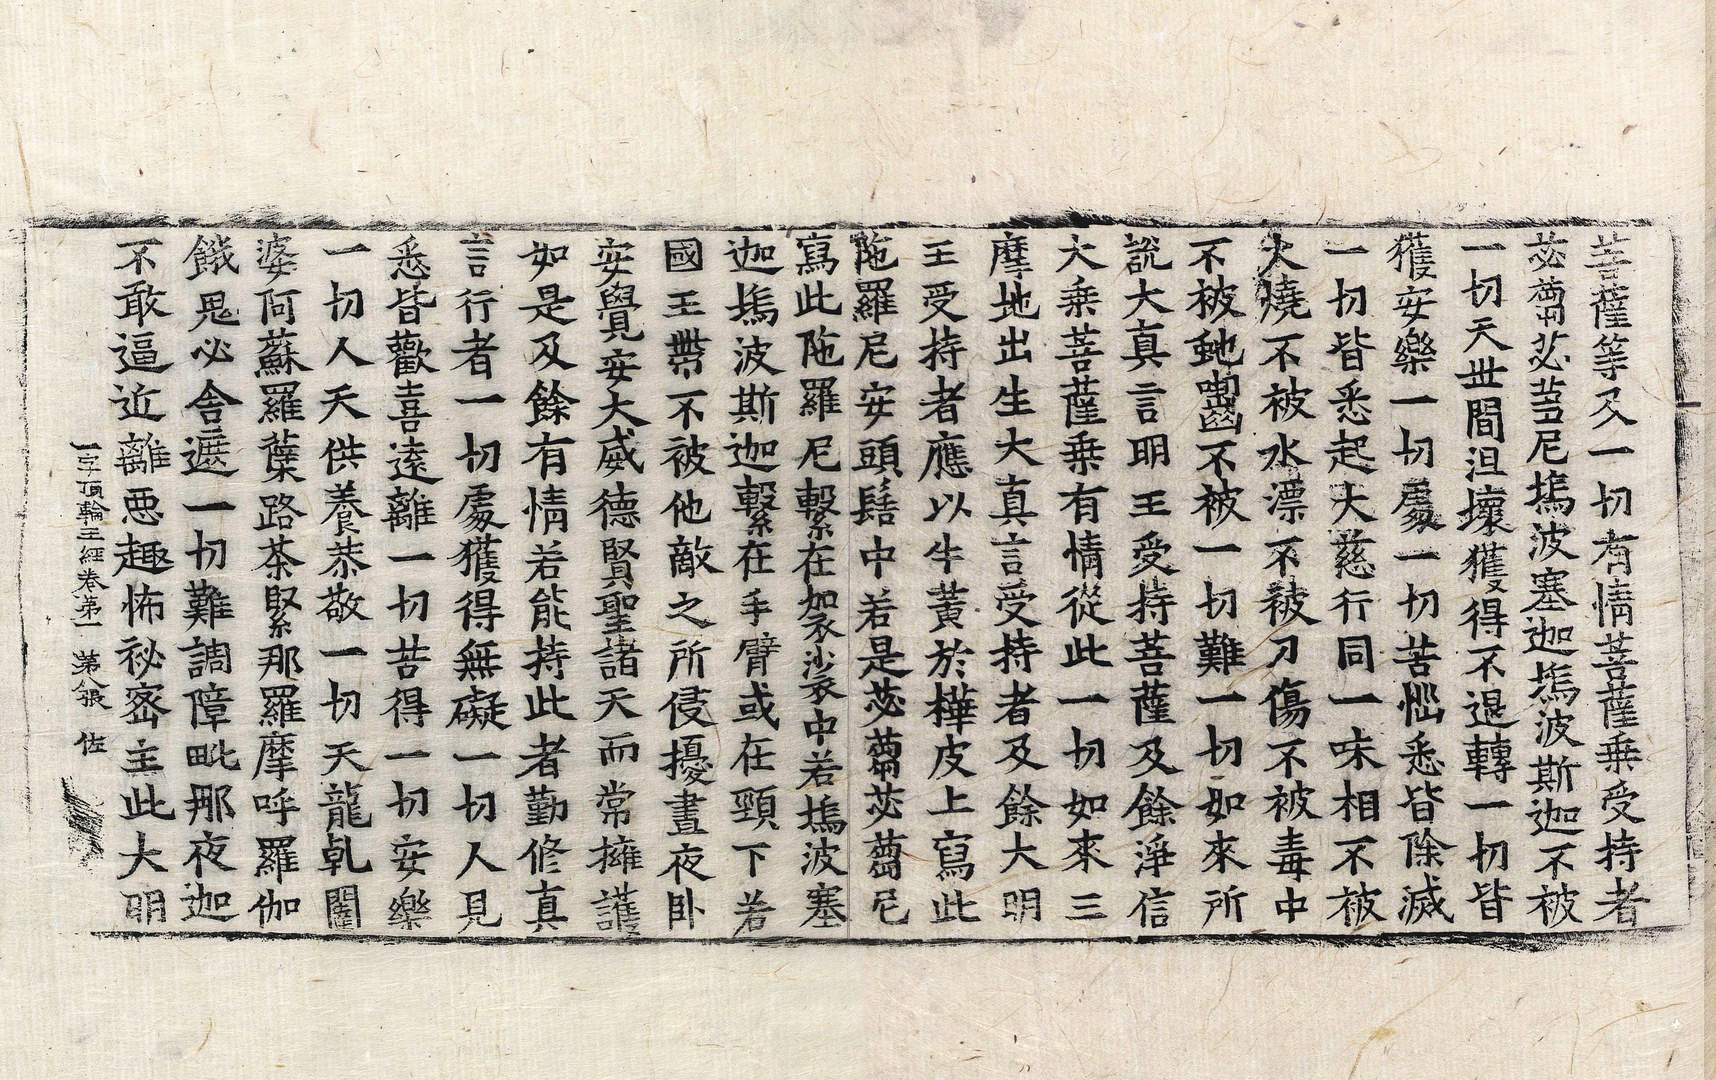 菩薩等及一切有情菩薩乗受持者
苾蒭苾蒭尼塢波塞迦塢波斯迦不被
一切天世間沮壞獲得不退轉一切皆
獲安樂一切處一切苦惱悉皆除滅
一切皆悉起大慈行同一味相不被
火燒不被水漂不被刀傷不被毒中
不被虵嚙不被一切難一切如來所
說大真言明王受持菩薩及餘淨信
大乗菩薩乗有情從此一切如來三
摩地出生大真言受持者及餘大明
王受持者應以牛黃於樺皮上寫此
陁羅尼安頭髻中若是苾蒭苾蒭尼
寫此陁羅尼繫在袈裟中若塢波塞
迦塢波斯迦繫在手臂或在頸下若
國王帶不被他敵之所侵擾晝夜卧
安覺安大威德賢聖諸天而常擁護
如是及餘有情若能持此者勤修真
言行者一切處獲得無礙一切人見
悉皆歡喜遠離一切苦得一切安樂
一切人天供養恭敬一切天龍乹闥
婆阿蘇羅蘖路茶緊那羅摩呼羅伽
餓鬼必舍遮一切難調障毗那夜迦
不敢逼近離惡趣怖祕密主此大明
一字頂輪王經卷第一 第八張 佐